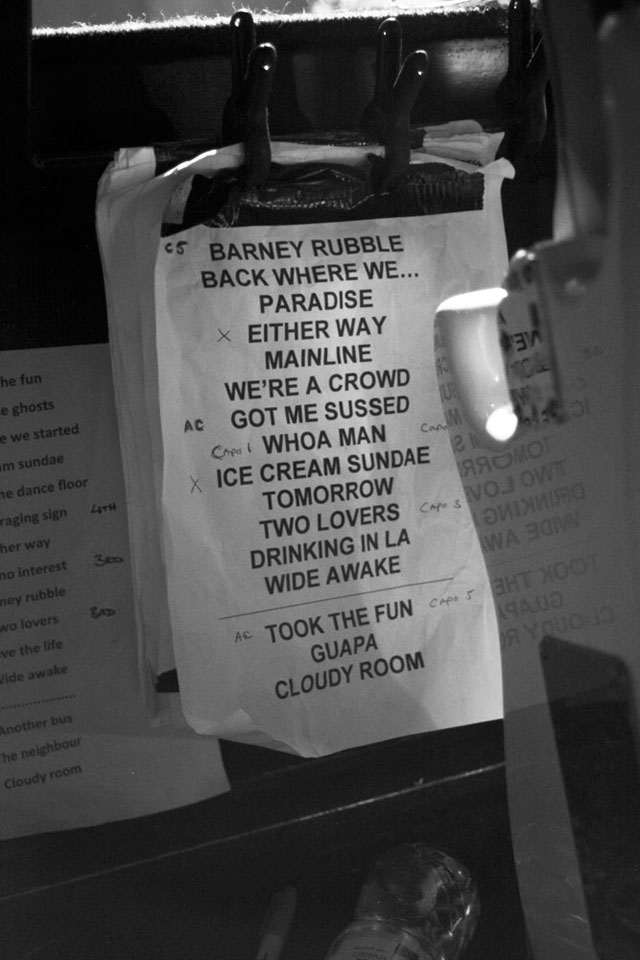 C5 BARNEY RUBBLE
BACK WHERE WE...
PARADISE
X EITHER WAY
MAINLINE
WE'RE A CROWD
AC GOT ME SUSSED
Capo 1 WHOA MAN
X ICE CREAM SUNDAE
TOMORROW
TWO LOVERS Capo 3
DRINKING IN LA
WIDE AWAKE
AC TOOK THE FUN Capo 5
GUAPA
CLOUDY ROOM
he fun
e ghosts
e we started
am sundae
he dance floor
raging sign 4TH
her way
no interest 3RD
ney rubble
wo lovers 3RD
ve the life
Wide awake
Another bus
The neighbour
Cloudy room